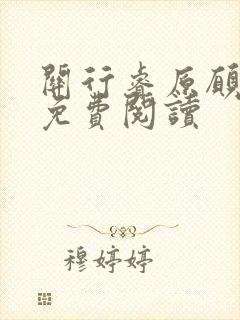 關行睿原顧
免費閱讀
穆婷婷